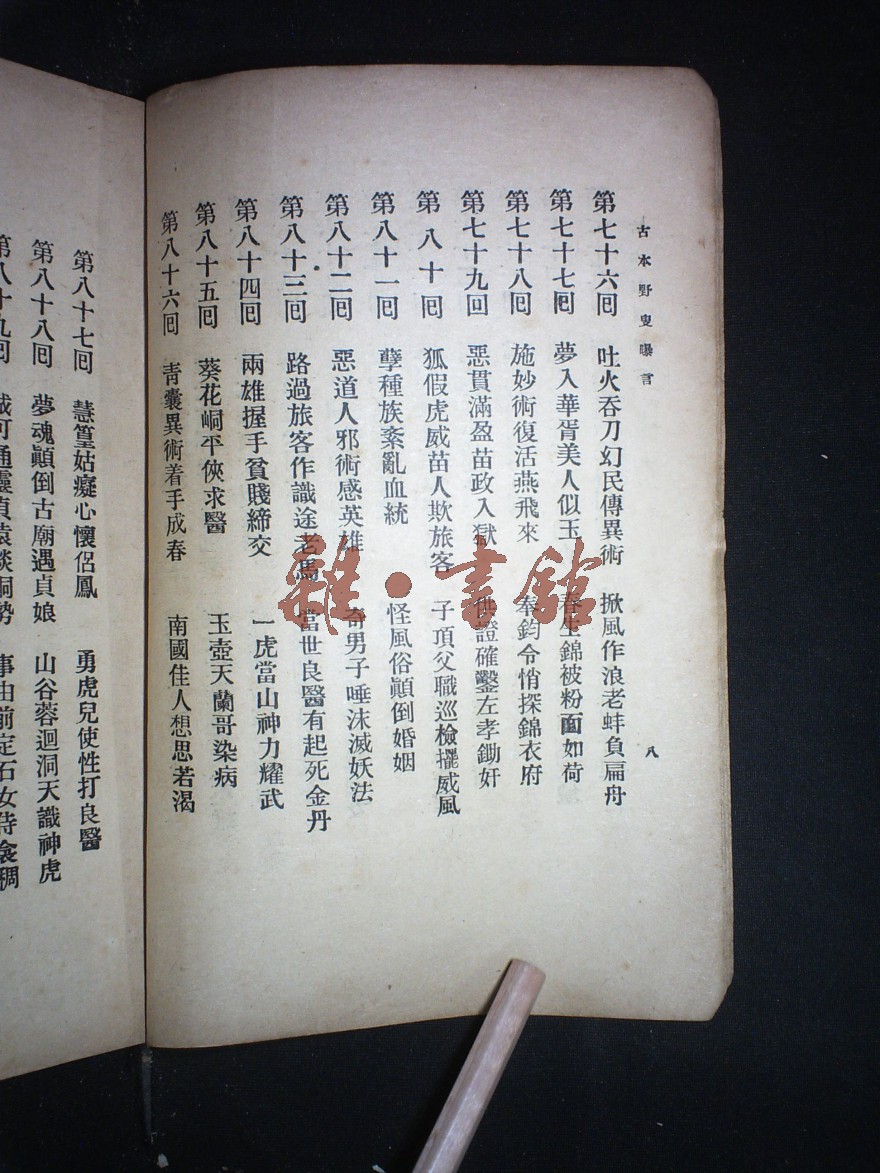 古本野叟曝言
第七十六囘 吐火吞刀幻民傳異術 掀風作浪老蚌負扁舟
第七十七囘 夢入華胥美人似玉 春生錦被粉面如荷
第七十八囘 施妙術復活燕飛來 奉鈞令悄探錦衣府
第七十九囘 惡貫滿盈苗政入獄 供證確鑿左孝鋤奸
第八十囘 狐假虎威苗人欺旅客 子頂父職巡檢擺威風
第八十一囘 孽種族紊亂血統 怪風俗顚倒婚姻
第八十二囘 惡道人邪術感英雄 奇男子唾沫滅妖法
第八十三囘 路過旅客作識途老馬 當世良醫有起死金丹
第八十四囘 兩雄握手貧賤締交 一虎當山神力耀武
第八十五囘 葵花峒平俠求醫 玉壺天蘭哥染病
第八十六囘 靑囊異術着手成春 南國佳人想思若渴
八
第八十七囘 慧篁姑癡心懷侶鳳 勇虎兒使性打良醫
第八十八囘 夢魂顚倒古廟遇貞娘 山谷蓉迴洞天識神虎
第八十九囘 可通靈 峒勢 事由前定石女侍衾稠
雜·書館